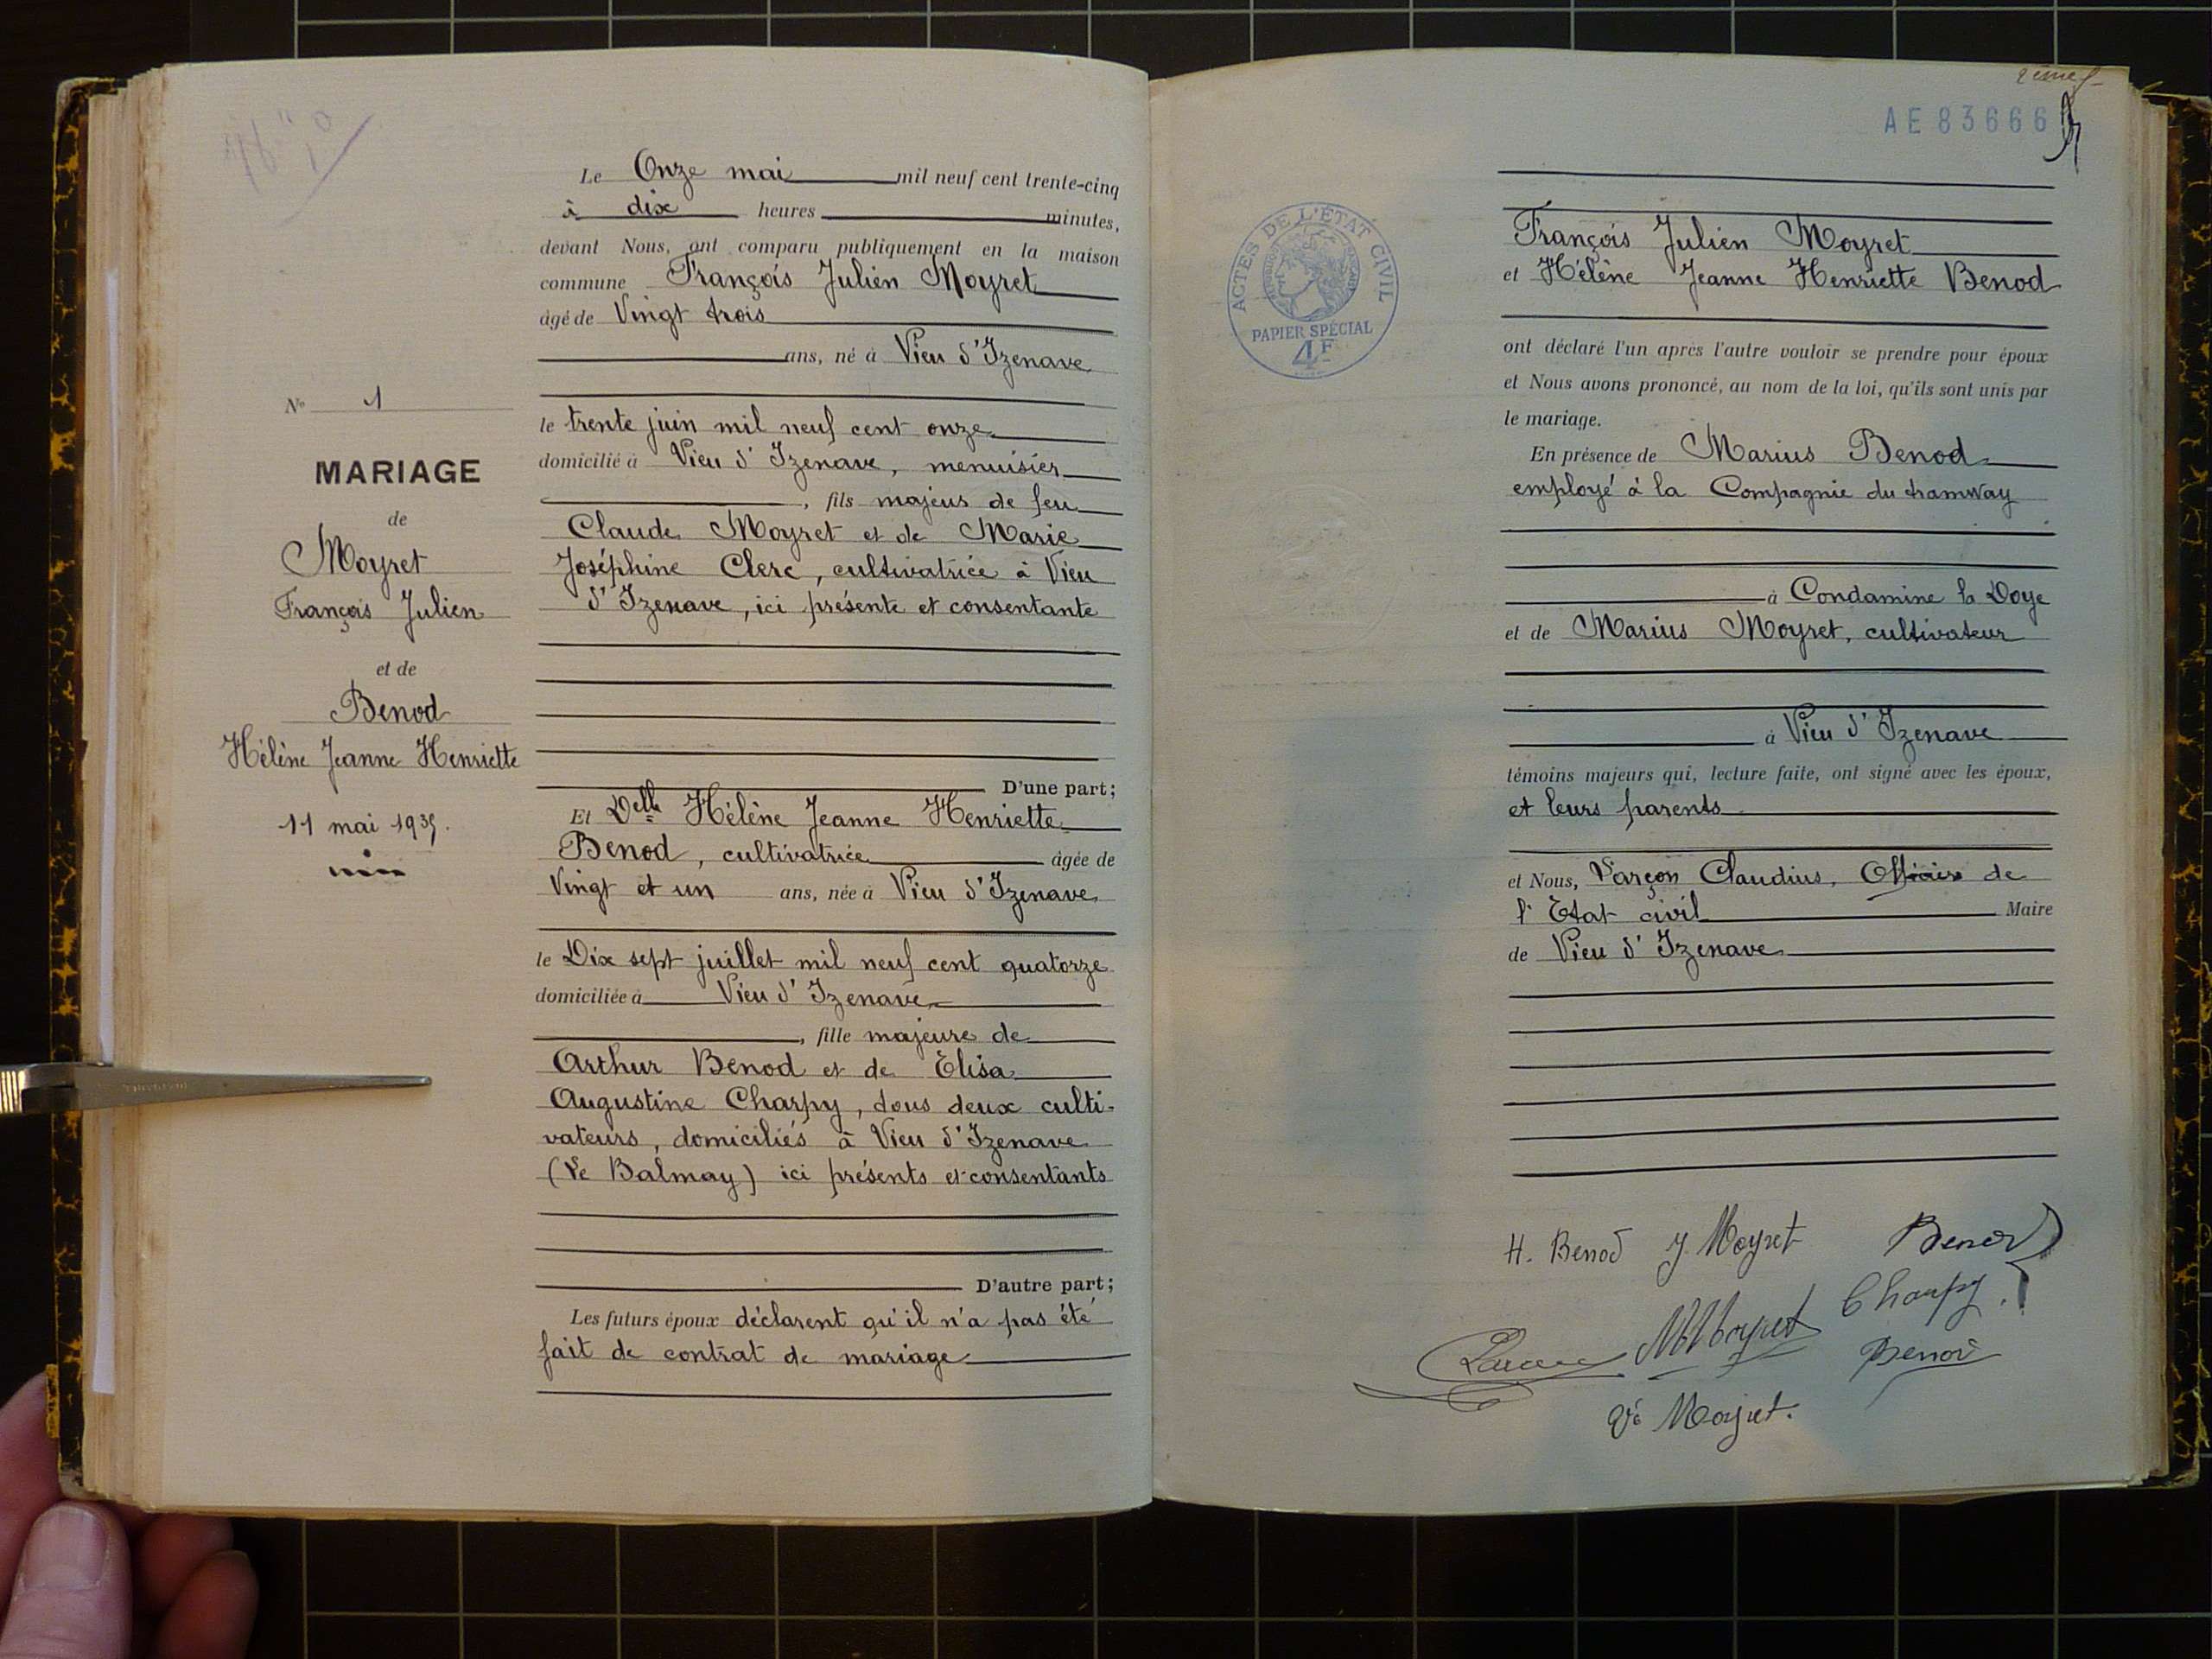 Le Onze mai mil neuf cent trente-cinq
à dix heures minutes,
devant Nous, ont comparu publiquement en la maison
commune François Julien Moyret
âgé de Vingt trois
ans, né à Vieu d'Izenave
le trente juin mil neuf cent onze
domicilié à Vieu d'Izenave, menuisier
, fils majeur de feu
Claude Moyret et de Marie
Joséphine Clerc, cultivatrice à Vieu
d'Izenave, ici présente et consentante
D'une part;
Et Delle Hélène Jeanne Henriette
Benod, cultivatrice âgée de
Vingt et un ans, née à Vieu d'Izenave
le Dix sept juillet mil neuf cent quatorze
domiciliée à Vieu d'Izenave
, fille majeure de
Arthur Benod et de Elisa
Augustine Charpy, tous deux culti-
vateurs, domiciliés à Vieu d'Izenave
(Le Balmay) ici présents et consentants
D'autre part;
Les futurs époux déclarent qu'il n'a pas été
fait de contrat de mariage
No 1
MARIAGE
de
Moyret
François Julien
et de
Benod
Hélène Jeanne Henriette
11 mai 1935.
AE 83666
ACTES DE L'ÉTAT CIVIL
PAPIER SPÉCIAL
4F
François Julien Moyret
et Hélène Jeanne Henriette Benod
ont déclaré l'un après l'autre vouloir se prendre pour époux
et Nous avons prononcé, au nom de la loi, qu'ils sont unis par
le mariage.
En présence de Marius Benod
employé à la Compagnie du tramway
à Condamine la Doye
et de Marius Moyret, cultivateur
à Vieu d'Izenave
témoins majeurs qui, lecture faite, ont signé avec les époux,
et leurs parents
et Nous, Varçon Claudius, Officier de
l'Etat civil Maire
de Vieu d'Izenave
H. Benod J. Moyret Benod
M Moyret Charpy
Benod
Vve Moyret.